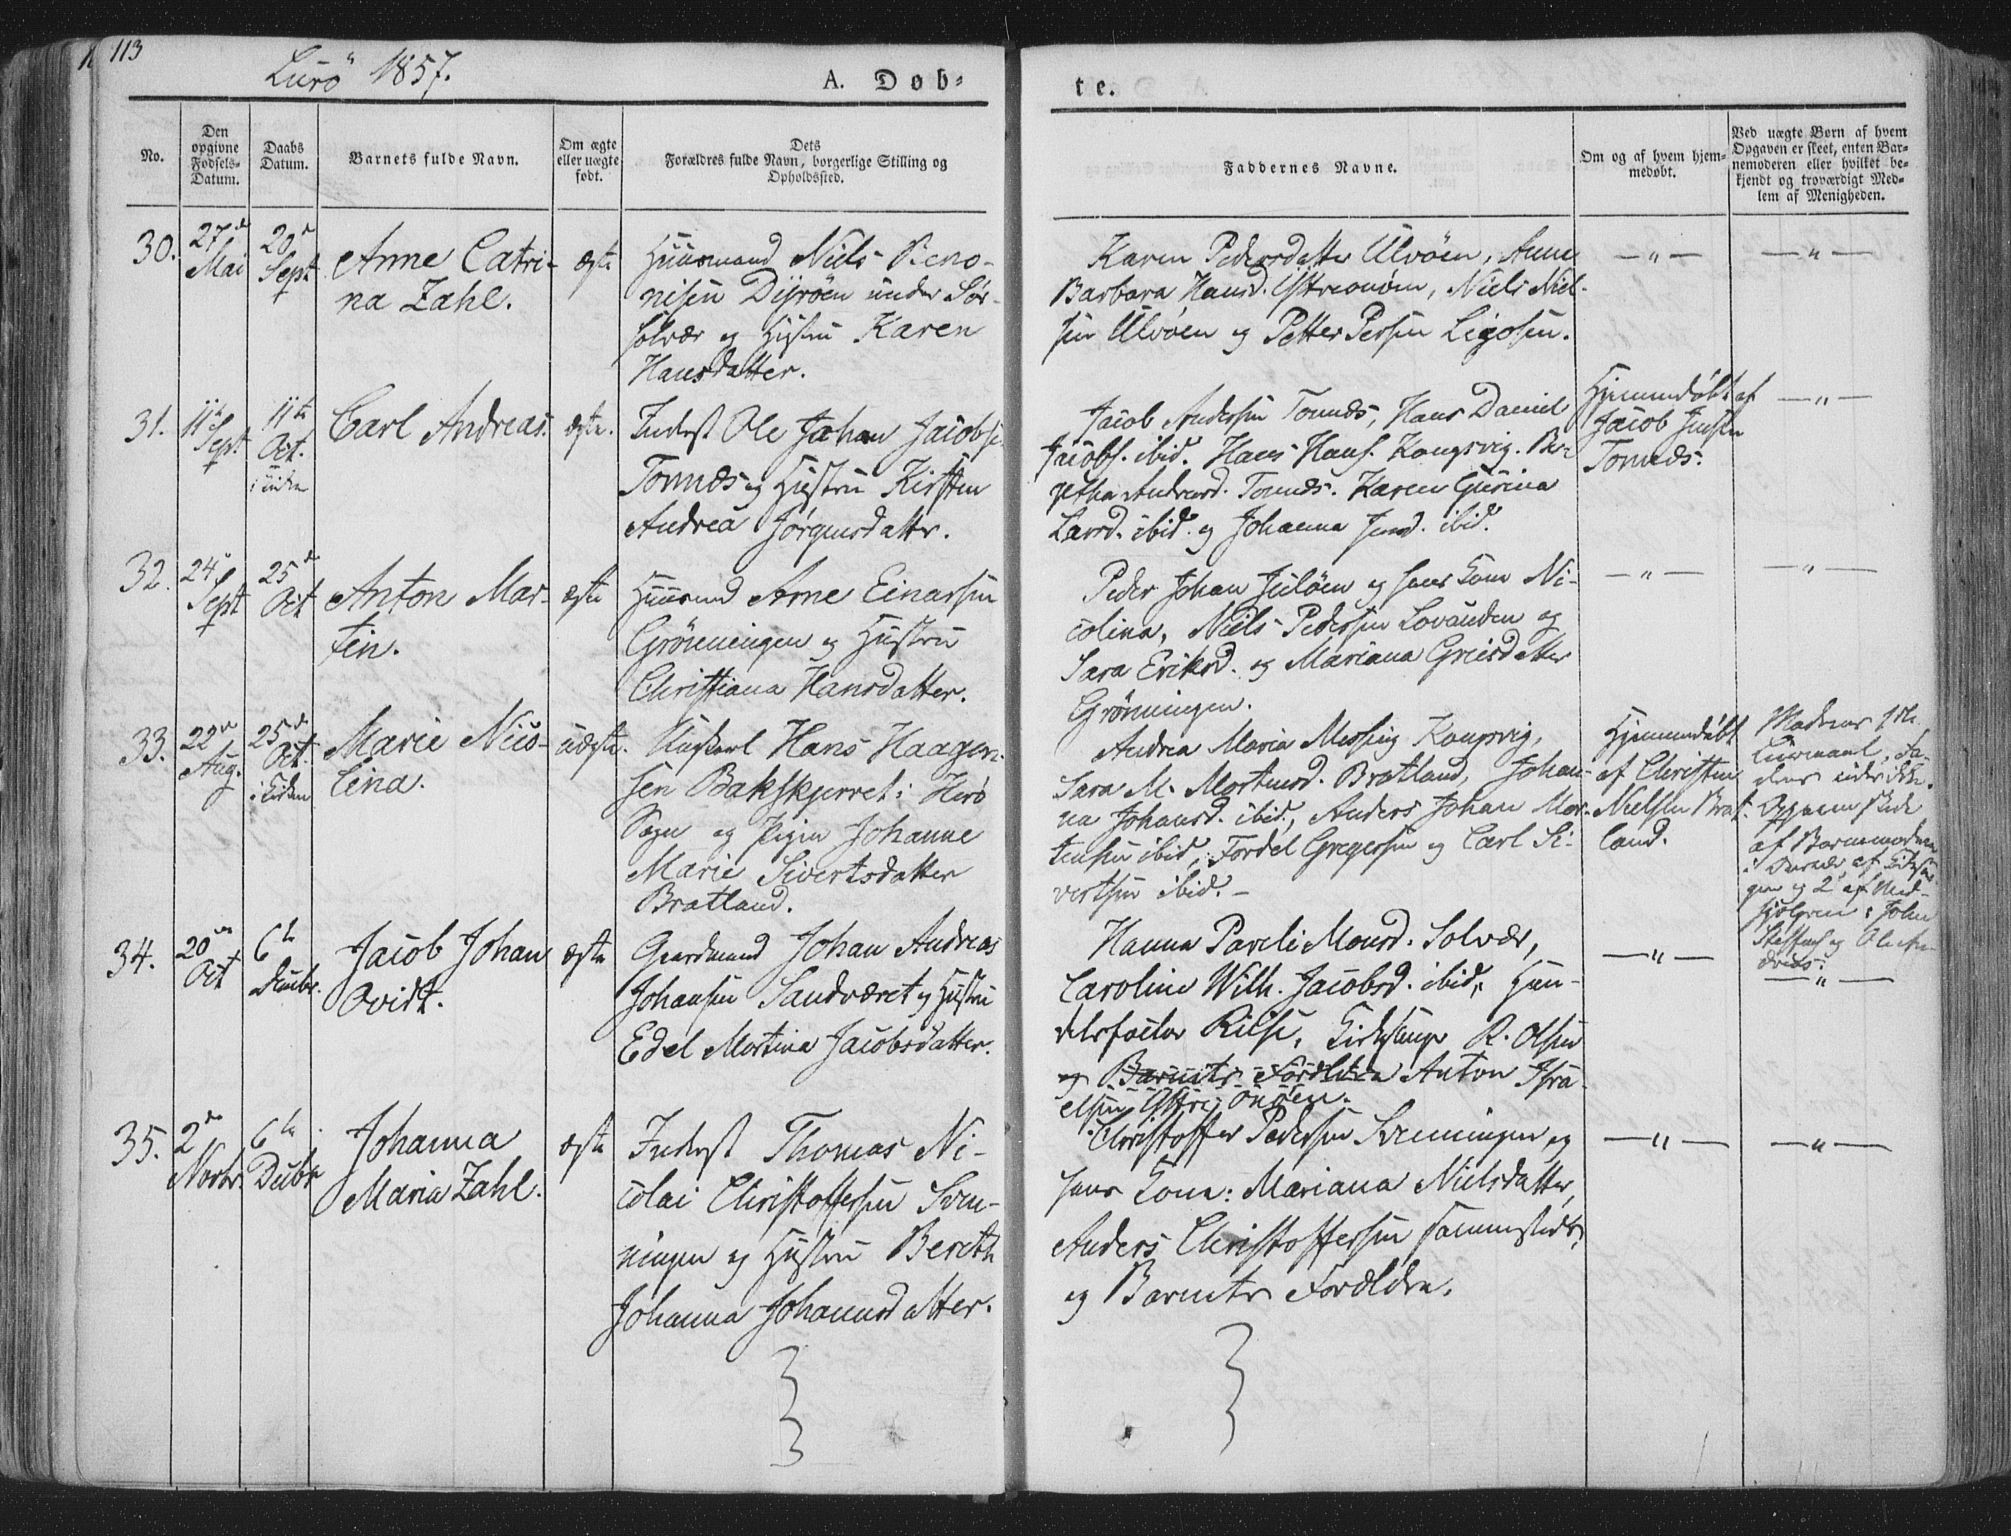 113
Lurö 1857.
A. Döb-
te.
No.
Den opgivne Fødsels-Datum.
Daabs Datum.
Barnets fulde Navn.
Om ægte eller uægte født.
Dets Forældres fulde Navn, borgerlige Stilling og Opholdssted.
Faddernes Navne.
Om og af hvem hjemmedøbt.
Ved uægte Børn af hvem Opgaven er skeet, enten Barnemoderen eller hvilket bekjendt og troværdigt Medlem af Menigheden.
30.
27de Mai
20de Sept
Anne Catri-
na Zahl.
ægte
Huusmand Niels Beno-
nisen Dijröen under Sör-
solvær og Hustru Karen
Hansdatter.
Karen Pedersdatter Ulvöen, Anne
Barbara Hansd. Ostreonöen, Niels Niel-
sen Ulvöen og Petter Persen Ligosen.
— „ —
— „ —
31.
11te Sept.
11te Oct.
Carl Andreas.
ægte.
Inderst Ole Johan Jacobs.
Tonnes og Hustru Kirsten
Andrea Jörgensdatter.
Jacob Andersen Tonnes, Hans Daniel
Jacobs. ibid. Hans Hans. Kongsvig. Be-
retha Andersd. Tonnes. Karen Gurina
Larsd. ibid. og Johanna Jensd. ibid.
Hjemmedöbt af
Jacob Jensen
Tonnes.
— „ —
32.
24 Sept
25de Oct
Anton Mar-
tin.
ægte
Huusmd Arne Einarsen
Grönningen og Hustru
Christiana Hansdatter.
Peder Johan Juliöen og hans Kone Ni-
colina, Niels Pedersen Lovunden og
Sara Eriksd. og Mariana Greisdatter
Grönningen.
— „ —
— „ —
33.
22de Aug.
25de Oct.
i Kirken
Marie Nico-
lina.
uægte.
Ungkarl Hans Haagen-
sen Bakskjerret i Herö
Sogn og Pigen Johanne
Marie Sivertsdatter
Bratland.
Andrea Maria Messing Kongsvig,
Sara M. Mortensd. Bratland, Johan-
na Johansd. ibid, Anders Johan Mor-
tensen ibid, Fordel Gregersen og Carl Si-
vertsen ibid. —
Hjemmedöbt
af Christen
Nielsen Brat-
land.
Moderens 1ste
Leiermaal, Fa-
derens vides ikke.
Opgaven skede
af Barnemoderen
34.
20de Oct
6te Decbr.
Jacob Johan
Ovidt.
ægte
Gaardmand Johan Andreas
Johansen Sandværet og Hustru
Edel Martina Jacobsdatter.
Hanna Pareli Monsd. Solvær,
Caroline Wilh. Jacobsd. ibid, Han-
delsfactor Riise, Kirkesanger R. Olsen
og Barnets Forældre Anton Isra-
elsen Ostre Onöen.
— „ —
— „ —
35.
2de Novbr.
6te Decbr
Johanna
Maria Zahl.
ægte
Inderst Thomas Ni-
colai Christoffersen Sven-
ningen og Hustru Bereth
Johanna Johannesdatter.
Christoffer Pedersen Svenningen og
hans Kone: Mariana Nielsdatter,
Anders Christoffersen sammesteds,
og Barnets Forældre.
— „ —
— „ —